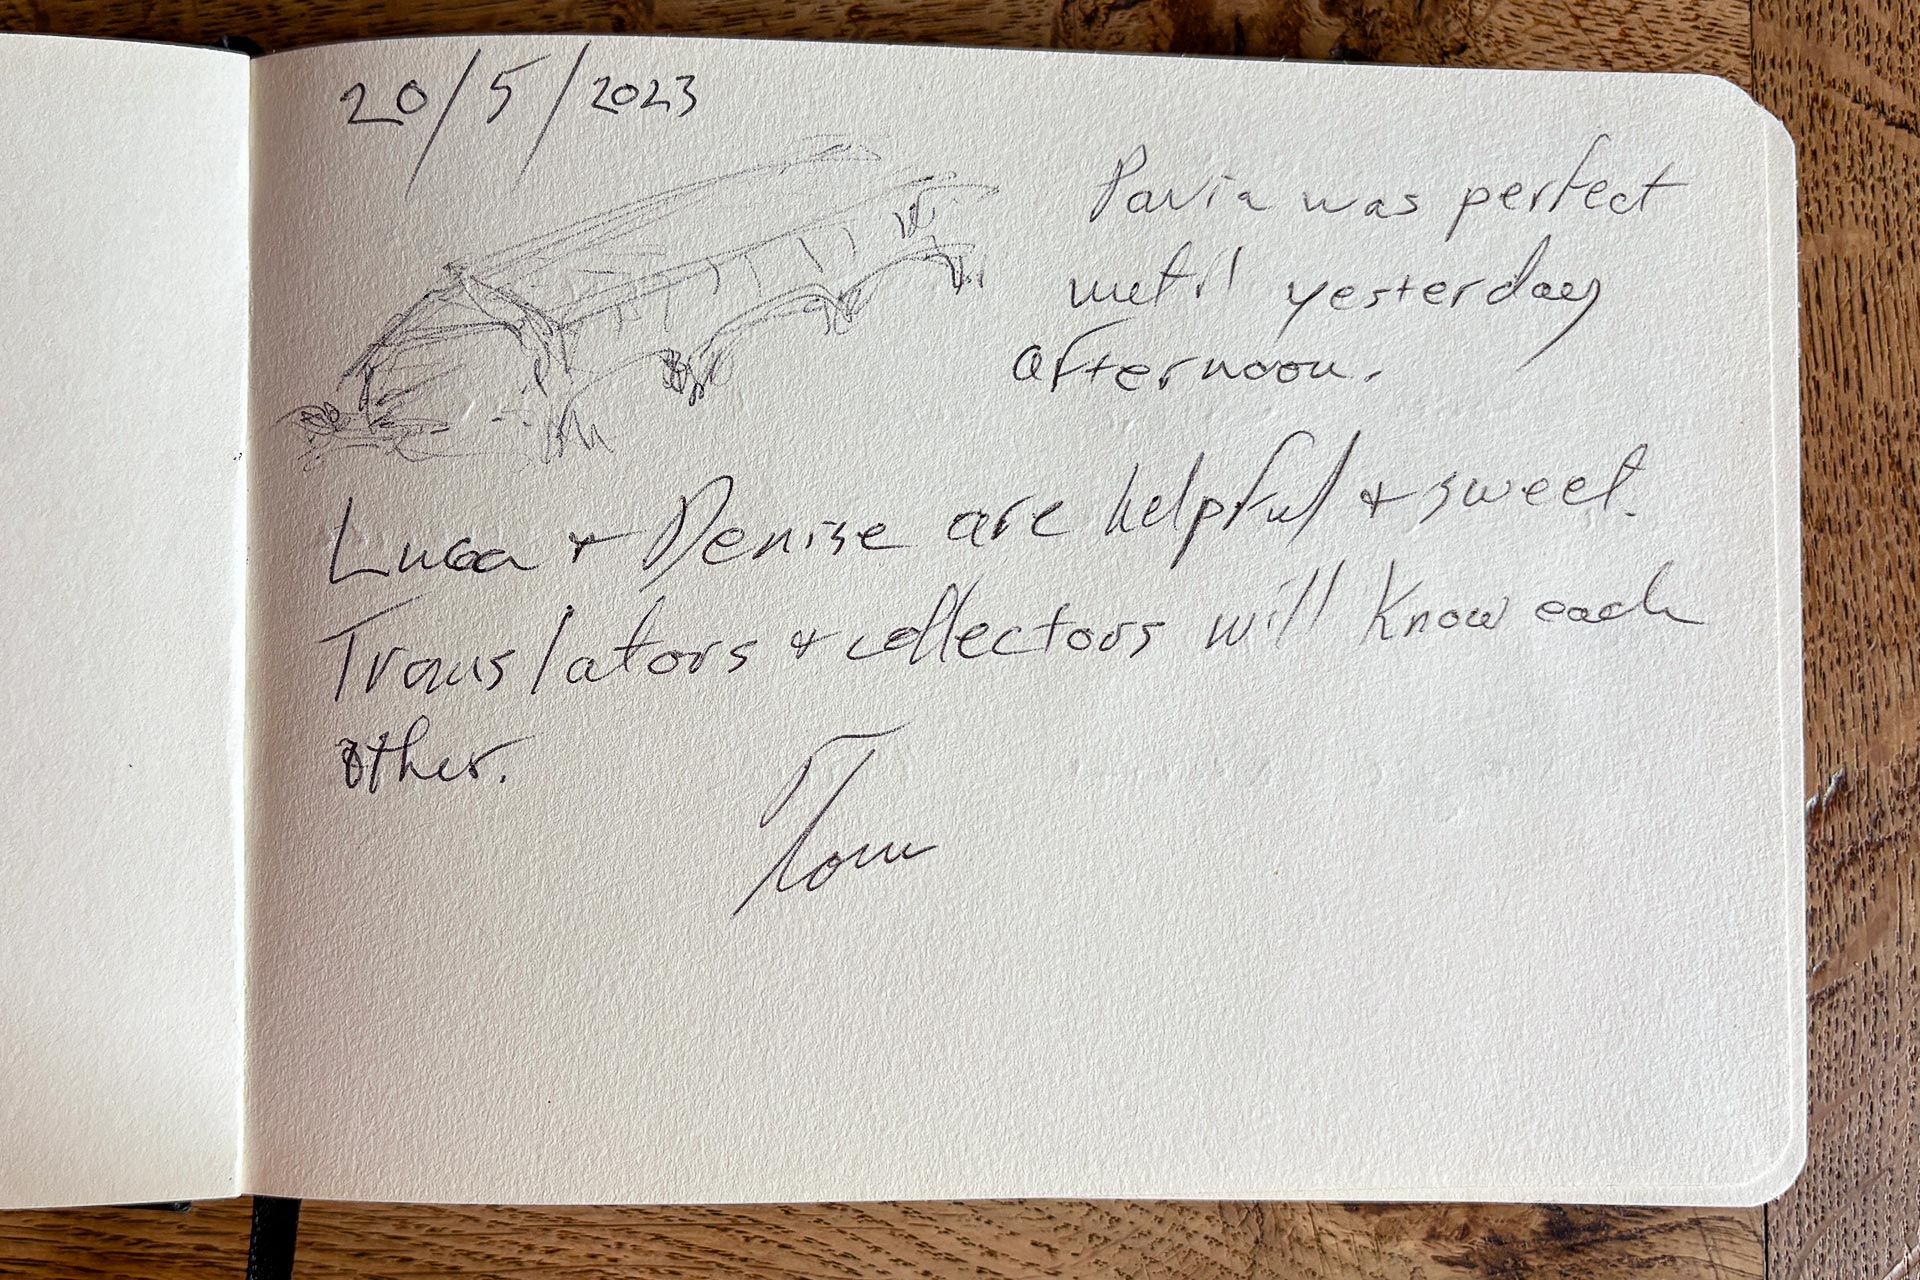 20/5/2023
Pavia was perfect
until yesterday
afternoon.
Luca + Denise are helpful + sweet.
Translators + collectors will know each
other.
Tom